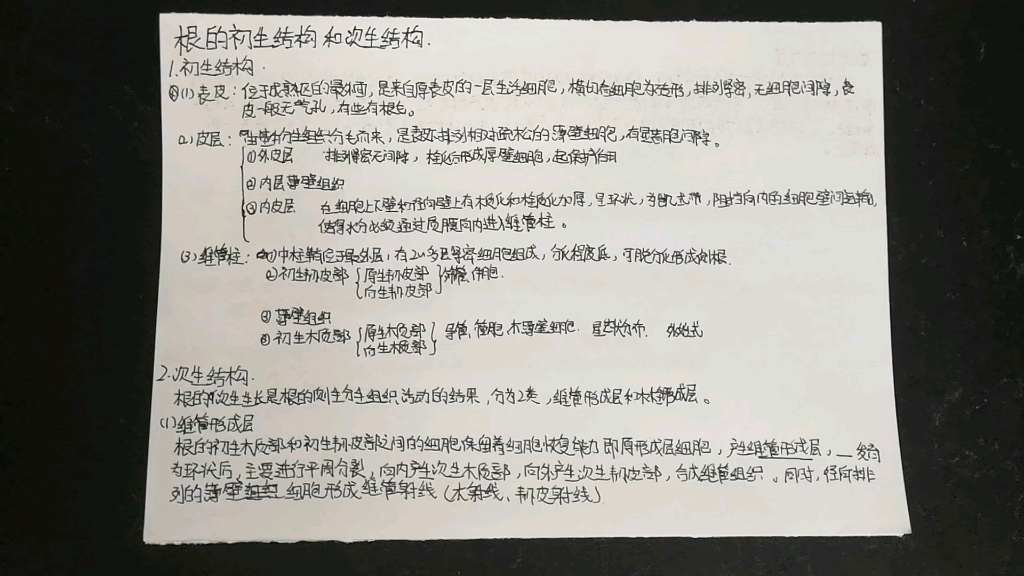 根的初生结构和次生结构.
1.初生结构.
(1)表皮：位于成熟区的最外面，是来自原表皮的一层生活细胞，横切面细胞为方形，排列紧密，无细胞间隙，表
皮一般无气孔，有些有根毛。
(2)皮层：由基本分生组织分化而来，是表皮排列相对疏松的薄壁细胞，有显著胞间隙。
①外皮层 排列紧密无间隙，栓化后形成厚壁细胞，起保护作用
②内层薄壁组织
③内皮层 在细胞上下壁和径向壁上有木质化和栓质化加厚，呈环状，为凯氏带，阻挡向内的细胞壁间运输，
使得水分必须通过质膜向内进入维管柱。
(3)维管柱：①中柱鞘位于最外层，有2~多层紧密细胞组成，分化程度低，可脱分化形成侧根.
②初生韧皮部 原生韧皮部 筛管、伴胞.
后生韧皮部
薄壁组织
初生木质部 原生木质部 导管、管胞、木薄壁细胞. 星芒状分布. 外始式
后生木质部
2.次生结构.
根的次生生长是根的侧生分生组织活动的结果，分为2类，维管形成层和木栓形成层。
(1)维管形成层
根的初生木质部和初生韧皮部之间的细胞保留着细胞恢复能力即原形成层细胞，产生维管形成层，
为环状后，主要进行平周分裂，向内产生次生木质部，向外产生次生韧皮部，合成维管组织。同时，径向排
列的薄壁组织细胞形成维管射线(木射线、韧皮射线)